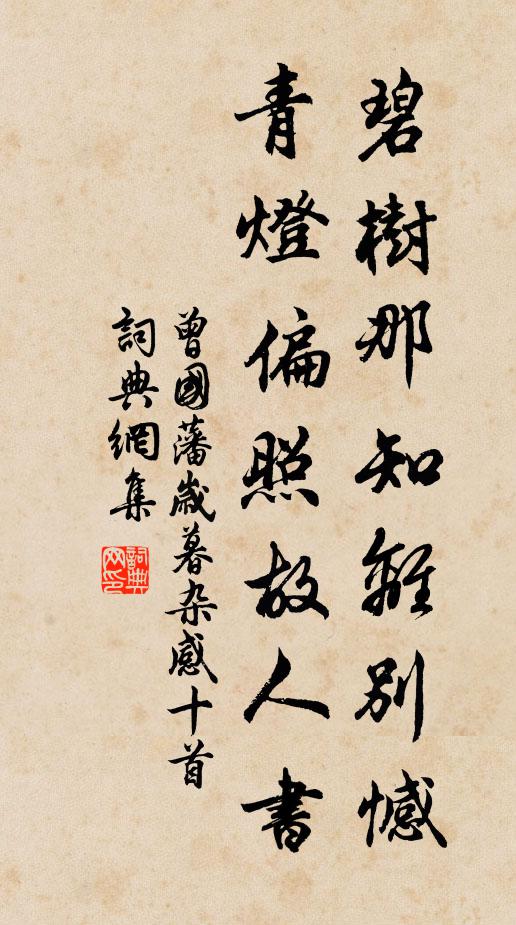 碧樹那知離別憾
青燈偏照故人書
曾國藩歲暮杂感十首
詞典網集
詞典网印